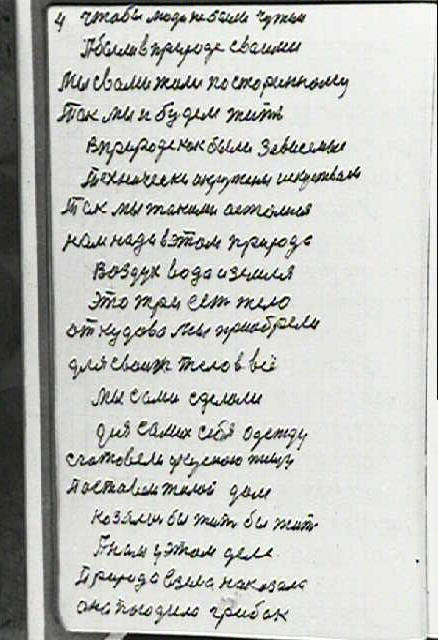 4 чтобы люди небыли чужим
А были в природе своими
Мы с вами жили по старинному
Так мы и будем жить
В природе как были зависемые
Технически окружены искуством
Так мы такими остались
нам надо в этом природа
Воздух вода и земля
Это три есть тело
откудова мы приобрели
для своих телов всё
мы сами сделали
для самих себя одежду
сготовели вкусною пищу
Поставили жилой дом
Козалось бы жить бы жить
А нам у этом деле
Природа взяла наказала
она породила грибок